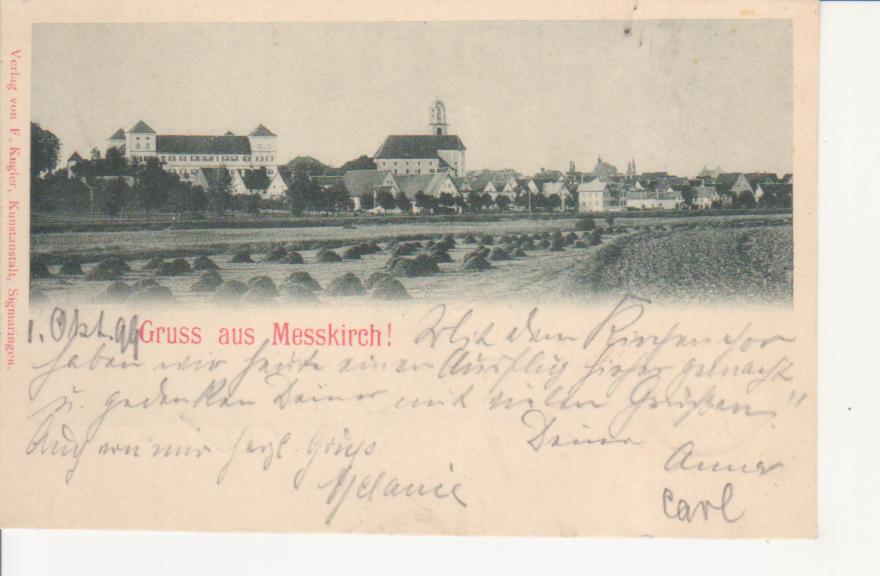 Verlag von F. Kugler, Kunstanstalt, Sigmaringen.
1. Okt. 99
Gruss aus Messkirch!
Mit dem Kirchenchor
haben wir heute einen Ausflug hieher gemacht
u. gedenken Deiner mit vielen Grüßen
Deine
Auch von mir herzl. Gruß
Anna
Melanie
Carl